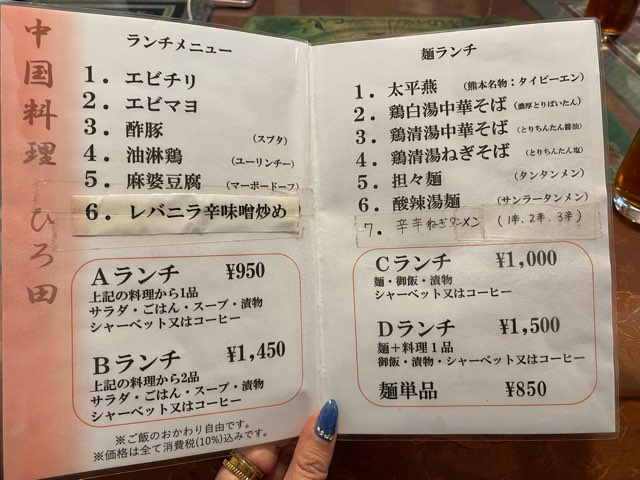 中国料理 ひろ田
ランチメニュー
1．エビチリ
2．エビマヨ
3．酢豚 (スブタ)
4．油淋鶏 (ユーリンチー)
5．麻婆豆腐 (マーボードーフ)
6．レバニラ辛味噌炒め
Aランチ ¥950
上記の料理から1品
サラダ・ごはん・スープ・漬物
シャーベット又はコーヒー
Bランチ ¥1,450
上記の料理から2品
サラダ・ごはん・スープ・漬物
シャーベット又はコーヒー
※ご飯のおかわり自由です。
※価格は全て消費税(10%)込みです。
麺ランチ
1．太平燕 (熊本名物：タイピーエン)
2．鶏白湯中華そば (濃厚とりぱいたん)
3．鶏清湯中華そば (とりちんたん醤油)
4．鶏清湯ねぎそば (とりちんたん塩)
5．担々麺 (タンタンメン)
6．酸辣湯麺 (サンラータンメン)
7．辛辛ねぎタンメン (1辛.2辛.3辛)
Cランチ ¥1,000
麺・御飯・漬物
シャーベット又はコーヒー
Dランチ ¥1,500
麺＋料理１品
御飯・漬物・シャーベット又はコーヒー
麺単品 ¥850